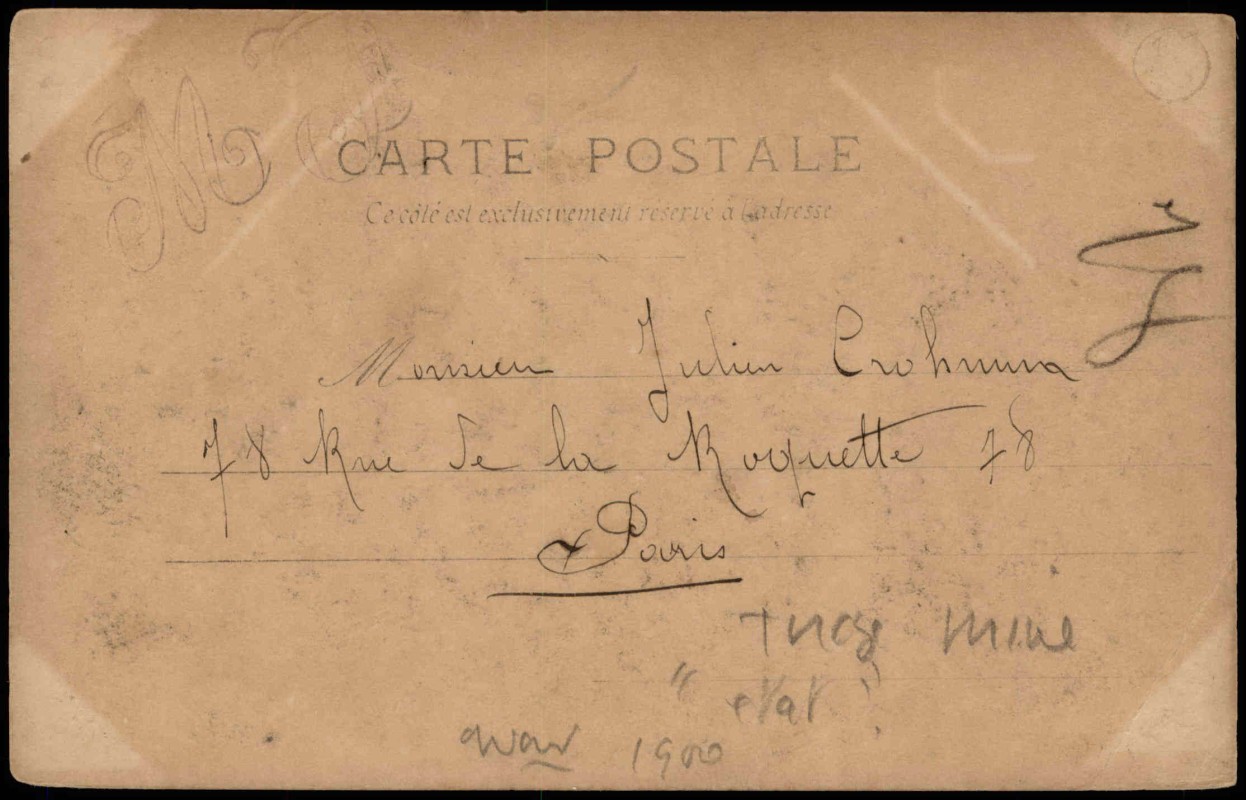 CARTE POSTALE
Ce côté est exclusivement réservé à l'adresse
Monsieur Julien
78 Rue de la Roquette 78
Paris
"état"
avant 1900